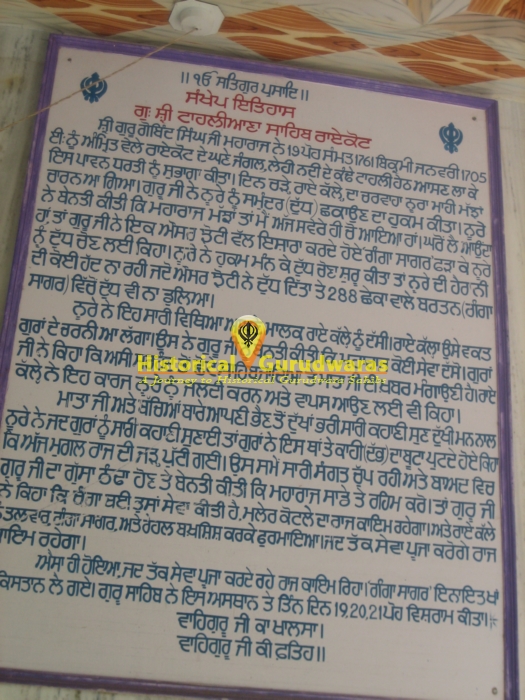 ॥ ੴ ਸਤਿਗੁਰ ਪ੍ਰਸਾਦਿ॥
ਸੰਖੇਪ ਇਤਿਹਾਸ
ਗੁ: ਸ਼੍ਰੀ ਟਾਹਲੀਆਣਾ ਸਾਹਿਬ ਰਾਏਕੋਟ
ਸ਼੍ਰੀ ਗੁਰੂ ਗੋਬਿੰਦ ਸਿੰਘ ਜੀ ਮਹਾਰਾਜ ਨੇ 19 ਪੋਹ ਸੰਮਤ 1761 ਬਿਕ੍ਰਮੀ ਜਨਵਰੀ 1705
ਈ: ਨੂੰ ਅੰਮ੍ਰਿਤ ਵੇਲੇ ਰਾਏਕੋਟ ਦੇ ਘਣੇ ਜੰਗਲ, ਲੇਹੀ ਨਦੀ ਦੇ ਕੰਢੇ ਟਾਹਲੀ ਹੇਠ ਆਸਣ ਲਾ ਕੇ
ਇਸ ਪਾਵਨ ਧਰਤੀ ਨੂੰ ਸੁਭਾਗਾ ਕੀਤਾ। ਦਿਨ ਚੜ੍ਹੇ, ਰਾਏ ਕੱਲੇ, ਦਾ ਚਰਵਾਹਾ ਨੂਰਾ ਮਾਹੀ ਮੱਝਾਂ
ਚਾਰਨ ਆ ਗਿਆ। ਗੁਰੂ ਜੀ ਨੇ ਨੂਰੇ ਨੂੰ ਸਮੁੰਦਰ (ਦੁੱਧ) ਛਕਾਉਣ ਦਾ ਹੁਕਮ ਕੀਤਾ। ਨੂਰੇ
ਨੇ ਬੇਨਤੀ ਕੀਤੀ ਕਿ ਮਹਾਰਾਜ ਮੱਝਾਂ ਤਾਂ ਮੈਂ ਅੱਜ ਸਵੇਰੇ ਹੀ ਚੋ ਆਇਆ ਹਾਂ। ਘਰੋਂ ਲੈ ਆਉਂਦਾ
ਹਾਂ ਤਾਂ ਗੁਰੂ ਜੀ ਨੇ ਇਕ ਔਸਰ ਝੋਟੀ ਵੱਲ ਇਸਾਰਾ ਕਰਦੇ ਹੋਏ ਗੰਗਾ ਸਾਗਰ ਫੜਾ ਕੇ ਨੂਰੇ
ਨੂੰ ਦੁੱਧ ਚੋਣ ਲਈ ਕਿਹਾ। ਨੂਰੇ ਨੇ ਹੁਕਮ ਮੰਨ ਕੇ ਦੁੱਧ ਚੋਣਾ ਸ਼ੁਰੂ ਕੀਤਾ ਤਾਂ ਨੂਰੇ ਦੀ ਹੈਰਾਨੀ
ਦੀ ਕੋਈ ਹੱਦ ਨਾ ਰਹੀ ਜਦੋਂ ਔਸਰ ਝੋਟੀ ਨੇ ਦੁੱਧ ਦਿੱਤਾ ਤੇ 288 ਛੇਕਾਂ ਵਾਲੇ ਬਰਤਨ (ਗੰਗਾ
ਸਾਗਰ) ਵਿੱਚੋਂ ਦੁੱਧ ਵੀ ਨਾ ਡੁਲਿਆ।
ਨੂਰੇ ਨੇ ਇਹ ਸਾਰੀ ਵਿਥਿਆ ਮਾਲਕ ਰਾਏ ਕੱਲੇ ਨੂੰ ਦੱਸੀ। ਰਾਏ ਕੱਲਾ ਉਸੇ ਵਕਤ
ਗੁਰਾਂ ਦੇ ਚਰਨੀ ਆ ਲੱਗਾ। ਉਸ ਨੇ ਗੁਰੂ ਕੋਈ ਸੇਵਾ ਦੱਸੋ। ਗੁਰਾਂ
ਜੀ ਨੇ ਕਿਹਾ ਕਿ ਅਸੀਂ ਖਬਰ ਮੰਗਾਉਣੀ ਹੈ। ਰਾਏ
ਕੱਲੇ ਨੇ ਇਹ ਕਾਰਜ ਨੂਰੇ ਨੂੰ ਜਲਦੀ ਕਰਨ ਅਤੇ ਵਾਪਸ ਆਉਣ ਲਈ ਵੀ ਕਿਹਾ।
ਮਾਤਾ ਜੀ ਅਤੇ ਬੱਚਿਆਂ ਬਾਰੇ ਆਪਣੀ ਭੈਣ ਤੋਂ ਦੁੱਖਾਂ ਭਰੀ ਸਾਰੀ ਕਹਾਣੀ ਸੁਣ ਦੁੱਖੀ ਮਨ ਨਾਲ
ਨੂਰੇ ਨੇ ਜਦ ਗੁਰਾਂ ਨੂੰ ਸਾਰੀ ਕਹਾਣੀ ਸੁਣਾਈ ਤਾਂ ਗੁਰਾਂ ਨੇ ਇਸ ਥਾਂ ਤੇ ਕਾਹੀ (ਦੱਭ) ਦਾ ਬੂਟਾ ਪੁਟਦੇ ਹੋਏ ਕਿਹਾ
ਕਿ ਅੱਜ ਮੁਗਲ ਰਾਜ ਦੀ ਜੜ੍ਹ ਪੁੱਟੀ ਗਈ। ਉਸ ਸਮੇਂ ਸਾਰੀ ਸੰਗਤ ਚੁੱਪ ਰਹੀ ਅਤੇ ਬਾਅਦ ਵਿਚ
ਗੁਰੂ ਜੀ ਦਾ ਗੁੱਸਾ ਠੰਢਾ ਹੋਣ ਤੇ ਬੇਨਤੀ ਕੀਤੀ ਕਿ ਮਹਾਰਾਜ ਸਾਡੇ ਤੇ ਰਹਿਮ ਕਰੋ। ਤਾਂ ਗੁਰੂ ਜੀ
ਨੇ ਕਿਹਾ ਕਿ ਚੰਗਾ ਬਈ ਤੁਸਾਂ ਸੇਵਾ ਕੀਤੀ ਹੈ, ਮਲੇਰ ਕੋਟਲੇ ਦਾ ਰਾਜ ਕਾਇਮ ਰਹੇਗਾ। ਅਤੇ ਰਾਏ ਕੱਲੇ
ਤਲਵਾਰ, ਗੰਗਾ ਸਾਗਰ, ਅਤੇ ਰੇਹਲ ਬਖਸ਼ਿਸ਼ ਕਰਕੇ ਫੁਰਮਾਇਆ। ਜਦ ਤੱਕ ਸੇਵਾ ਪੂਜਾ ਕਰੋਗੇ ਰਾਜ
ਕਾਇਮ ਰਹੇਗਾ।
ਐਸਾ ਹੀ ਹੋਇਆ, ਜਦ ਤੱਕ ਸੇਵਾ ਪੂਜਾ ਕਰਦੇ ਰਹੇ ਰਾਜ ਕਾਇਮ ਰਿਹਾ। ਗੰਗਾ ਸਾਗਰ ਇਨਾਇਤ ਖਾਂ
ਕਿਸਤਾਨ ਲੈ ਗਏ। ਗੁਰੂ ਸਾਹਿਬ ਨੇ ਇਸ ਅਸਥਾਨ ਤੇ ਤਿੰਨ ਦਿਨ 19,20,21 ਪੋਹ ਵਿਸ਼ਰਾਮ ਕੀਤਾ।
ਵਾਹਿਗੁਰੂ ਜੀ ਕਾ ਖਾਲਸਾ।
ਵਾਹਿਗੁਰੂ ਜੀ ਕੀ ਫ਼ਤਿਹ॥
Historical Gurudwaras
A Journey to Historical Gurudwara Sahibs